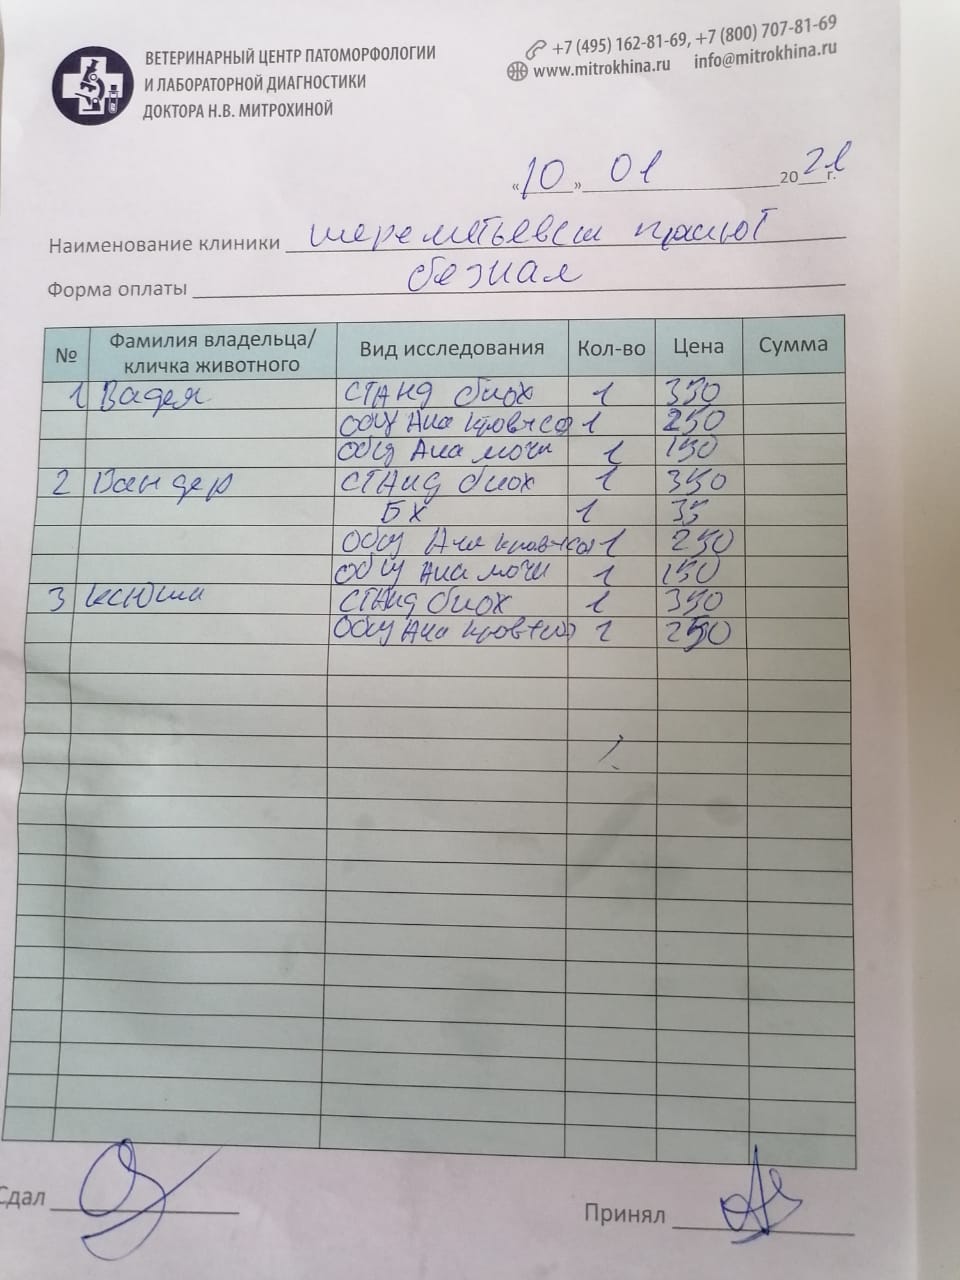 ВЕТЕРИНАРНЫЙ ЦЕНТР ПАТОМОРФОЛОГИИ
И ЛАБОРАТОРНОЙ ДИАГНОСТИКИ
ДОКТОРА Н.В. МИТРОХИНОЙ
+7 (495) 162-81-69, +7 (800) 707-81-69
www.mitrokhina.ru info@mitrokhina.ru
«10» 01 2021 г.
Наименование клиники приют
Форма оплаты безнал
№ Фамилия владельца/ кличка животного Вид исследования Кол-во Цена Сумма
1 СТАНД биох 1 350
Общ Ана крови 1 250
Общ Ана мочи 1 150
2 Вандер СТАНД биох 1 350
БХ 1 35
Общ Ана крови 1 250
Общ Ана мочи 1 150
3 Ксюша СТАНД биох 1 350
Общ Ана крови 1 250
Сдал
Принял